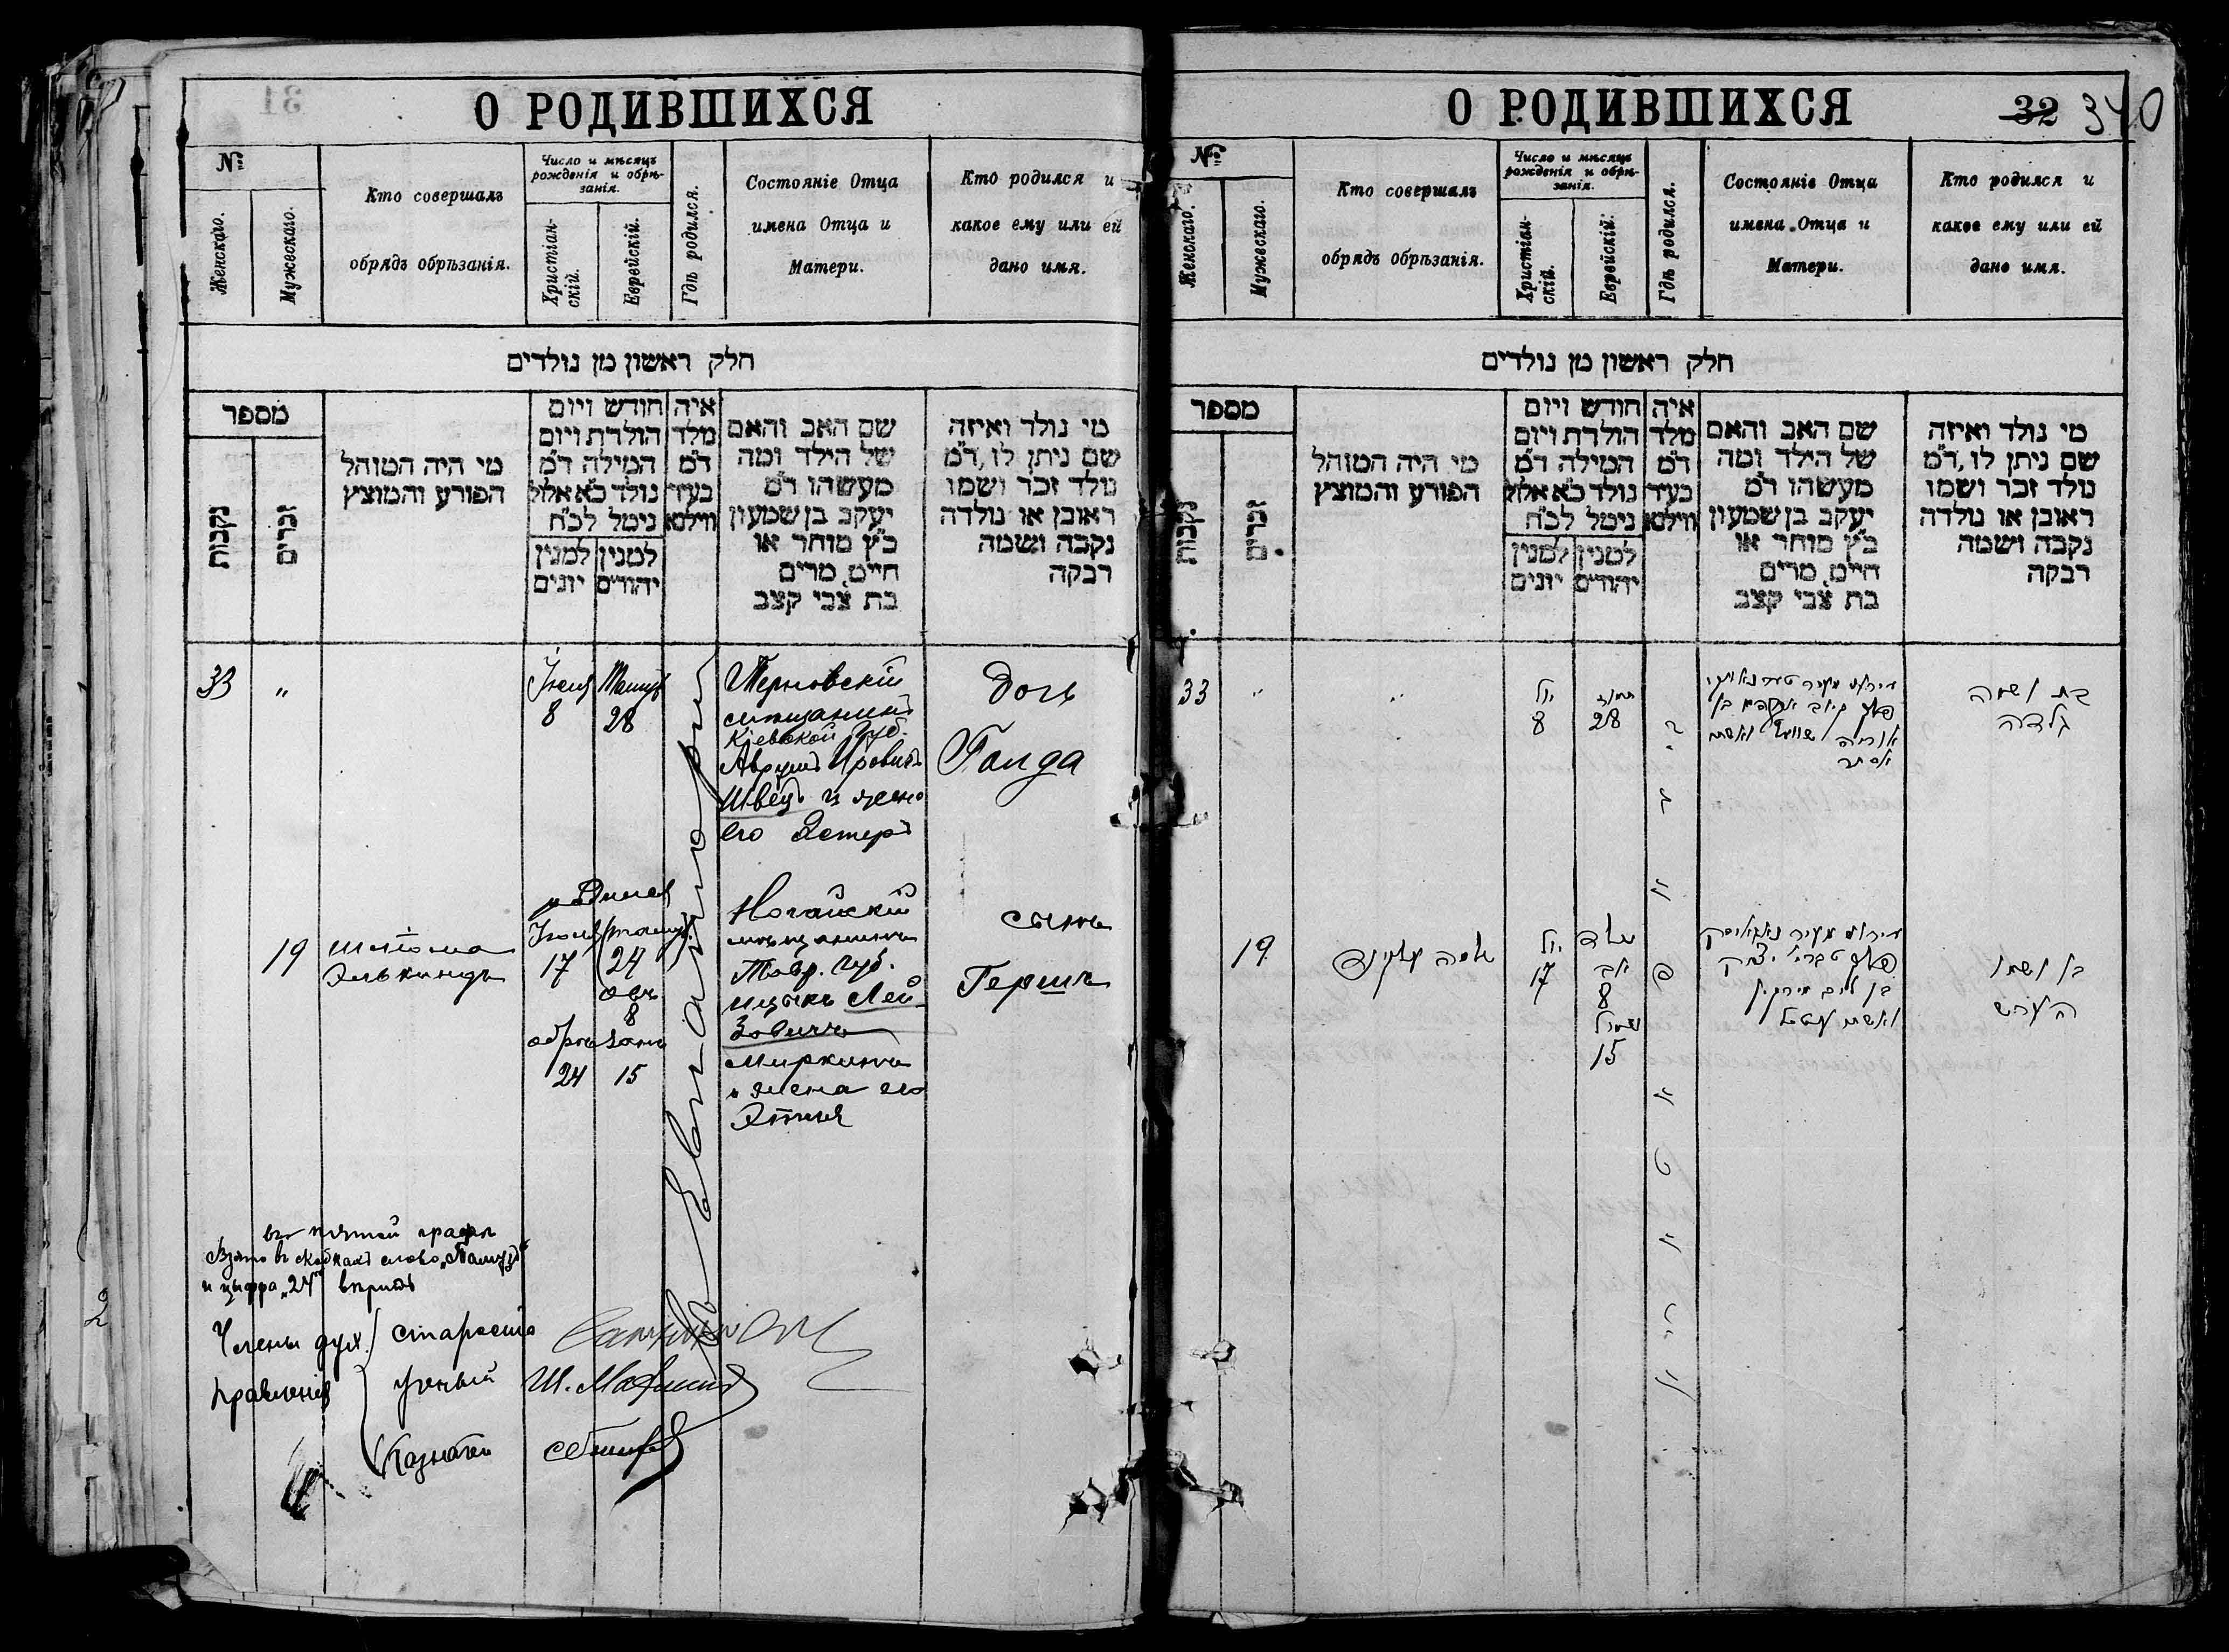 О РОДИВШИХСЯ
№
Женскаго.
Мужескаго.
Кто совершалъ
обрядъ обрѣзанія.
Число и мѣсяцъ
рожденія и обрѣ-
занія.
Христіан-
скій.
Еврейскій.
Гдѣ родился.
Состояніе Отца
имена Отца и
Матери.
Кто родился и
какое ему или ей
дано имя.
חלק ראשון מן נולדים
מספר
נקבות
זכרים
מי היה המוהל
הפורע והמוצץ
חודש ויום
הולדת ויום
המילה ד״מ
נולד כ״א אלול
נימל לכ״ח
למנין יהודים
למנין יונים
איה
מלד
ד״מ
בעיר
ווילנא
שם האב והאם
של הילד ומה
מעשהו ד״מ
יעקב בן שמעון
כ״ץ סוחר או
חייט, מרים
בת צבי קצב
מי נולד ואיזה
שם ניתן לו, ד״מ
נולד זכר ושמו
ראובן או נולדה
נקבה ושמה
רבקה
33
"
Іюля
8
Тамузъ
28
мѣщанинъ
Кіевской Губ.
Аврумъ
Швецъ и жена
его Эстеръ
дочь
Голда
19
Шлома
Элькиндъ
родился
Іюля
17
(тамуз)
24
овъ
8
обрѣзанъ
24 15
Ногайскій
мѣщанинъ
Тавр. губ.
Ицыкъ Лей-
зовичъ
Миркинъ
и жена его
сынъ
Гершъ
въ пятой графѣ
Взято въ скобкахъ слово „Тамузъ“
и цыфра „24“
Члены дух.
правленія
староста
ученый
Казначей
О РОДИВШИХСЯ
32 340
№
Женскаго.
Мужескаго.
Кто совершалъ
обрядъ обрѣзанія.
Число и мѣсяцъ
рожденія и обрѣ-
занія.
Христіан-
скій.
Еврейскій.
Гдѣ родился.
Состояніе Отца
имена Отца и
Матери.
Кто родился и
какое ему или ей
дано имя.
חלק ראשון מן נולדים
מספר
נקבות
זכרים
מי היה המוהל
הפורע והמוצץ
חודש ויום
הולדת ויום
המילה ד״מ
נולד כ״א אלול
נימל לכ״ח
למנין יהודים
למנין יונים
איה
מלד
ד״מ
בעיר
ווילנא
שם האב והאם
של הילד ומה
מעשהו ד״מ
יעקב בן שמעון
כ״ץ סוחר או
חייט, מרים
בת צבי קצב
מי נולד ואיזה
שם ניתן לו, ד״מ
נולד זכר ושמו
ראובן או נולדה
נקבה ושמה
רבקה
33
"
"
יול
8
תמוז
28
אסתר
בת ושמה
גלדה
19
יול
17
נולד
אב
8
נימול
15
בן ושמו
הירש